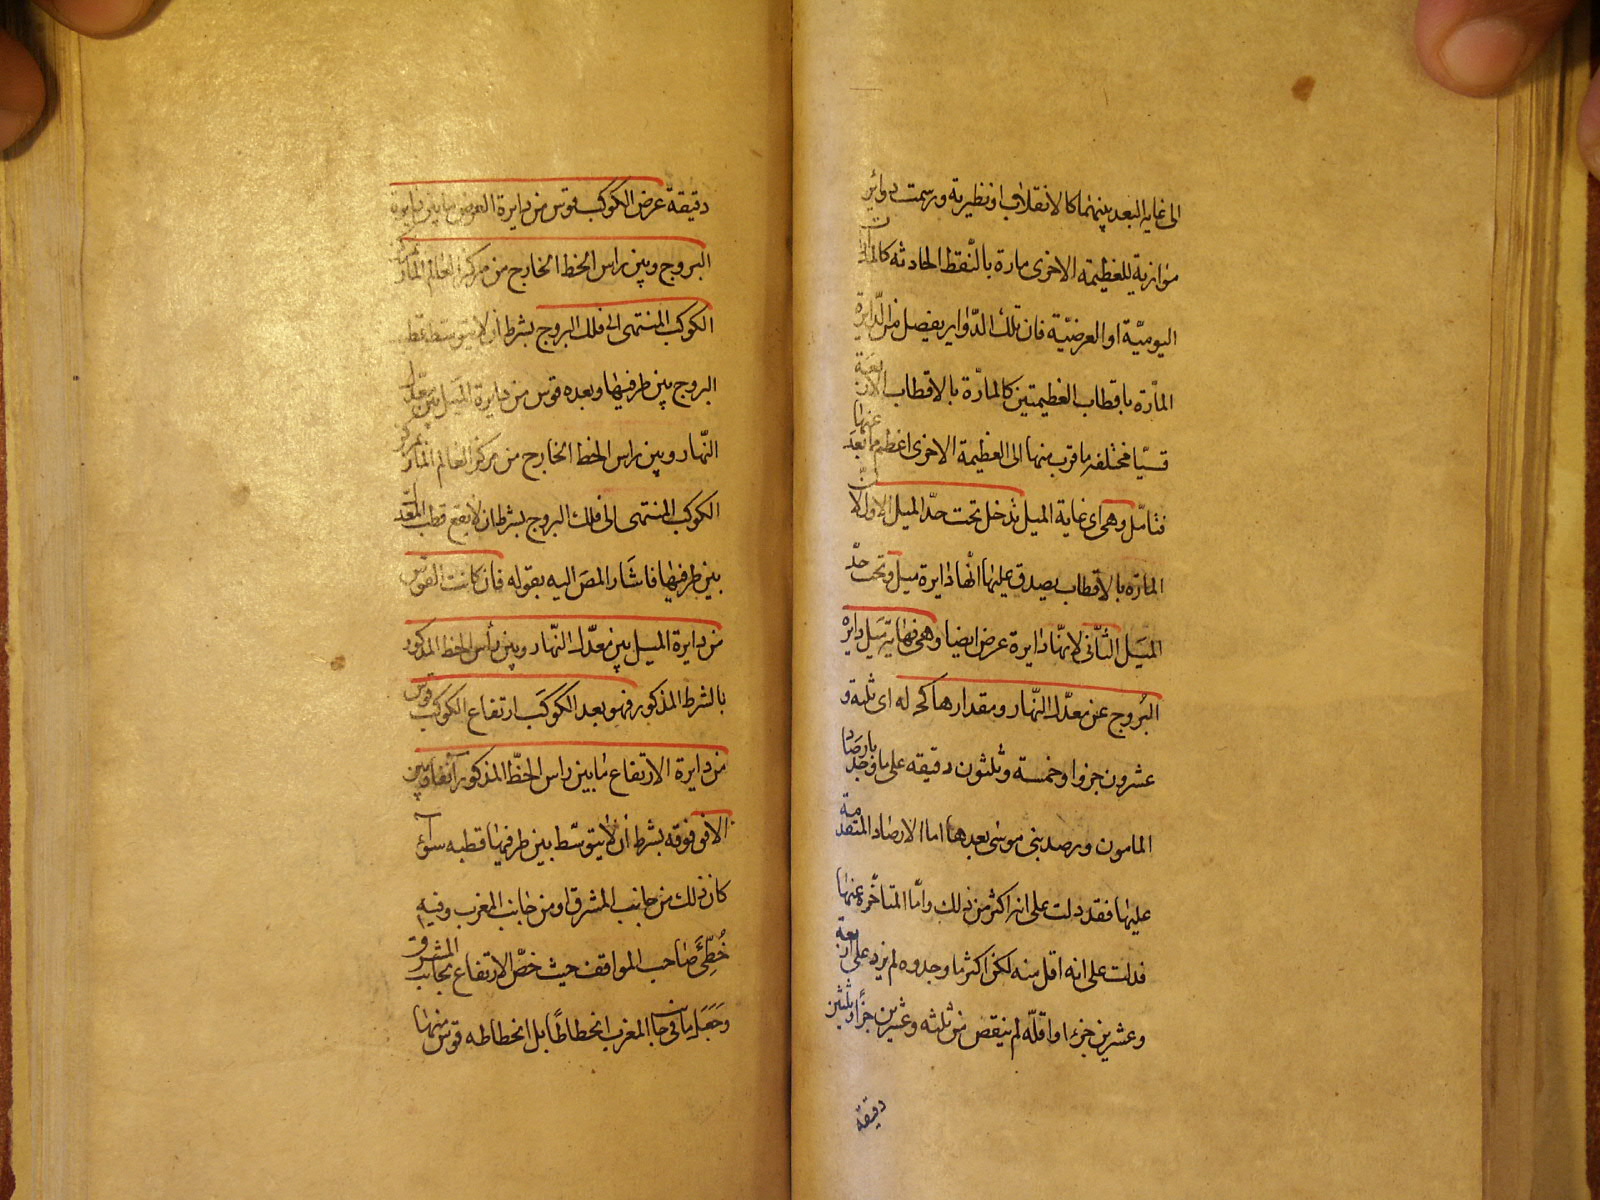 الى غاية البعد بينهما كالانقلاب او نظيرته ورسمت دوائر
موازية للعظيمة الاخرى مارة بالنقط الحادثه كالمدارات
اليوميّة او العرضيّة فان تلك الدّواير يفصل من الدّايرة
المارّة باقطاب العظيمتين كالمارّة بالاقطاب الاربعة
قسيّا مختلفه ما قرب منها الى العظيمة الاخرى اعظم مما بعد عنها
فتامّل وهى اى غاية الميل تدخل تحت حدّ الميل الاول لان
المارّه بالاقطاب يصدق عليها انّها دايرة ميل وتحت حدّ
الميَل الثّانى لانّها دايرة عرض ايضا وهى نهاية ميَل دايرة
البُروج عن معدّل النّهار ومقدارها كج له اى ثلثة و
عشرون جزوا وخمسة وثلثون دقيقه على ما وجد بارصاد
المامون ورصد بنى موسى بعدها اما الارصاد المتقدمة
عليها فقد دلت على انه اكثر من ذلك وامّا المتاخّرة عنها
فدلت على انه اقل منه لكن اكثر ما وجدوه لم يزد على اربعة
وعشرين جزء او اقلّه لم ينقص من ثلثه وعشرين جزًا وثلثين
دقيقة
دقيقة عرض الكوكب قوس من دايرة العرض ما بين دايرة
البروج وبين راس الخط الخارج من مركز العالم المار بمركز
الكوكب المنتهى الى فلك البروج بشرط ان لا يتوسط قطب
البروج بين طرفيها وبعده قوس من دايرة الميَل بين معدّل
النّهار وبين راس الخط الخارج من مركز العالم المار بمركز
الكوكب المنتهى الى فلك البروج بشرط ان لا يقع قطب المعدّل
بين طرفيها فاشَار المصَ اليه بقوله فان كانت القوس
من دايرة الميل بين معدّل النّهار وبين رأس الخط المذكور
بالشرط المذكور فهو بعد الكوكَب ارتفاع الكوكب قوس
من دايرة الارتفاع ما بين راس الخطّ المذكور آنفا وبين
الافق فوقه بشرط ان لا يتوسّط بين طرفيها قطبه سوآء
كان ذلك من جانب المشرق او من جانب المغرب وفيه
خُطِّئَ صَاحب المواقف حيث خصّ الارتفاع بجانب المشرق
وجَعَل ما فى جانب المغرب انحطاطًا بل انحطاطه قوس منها